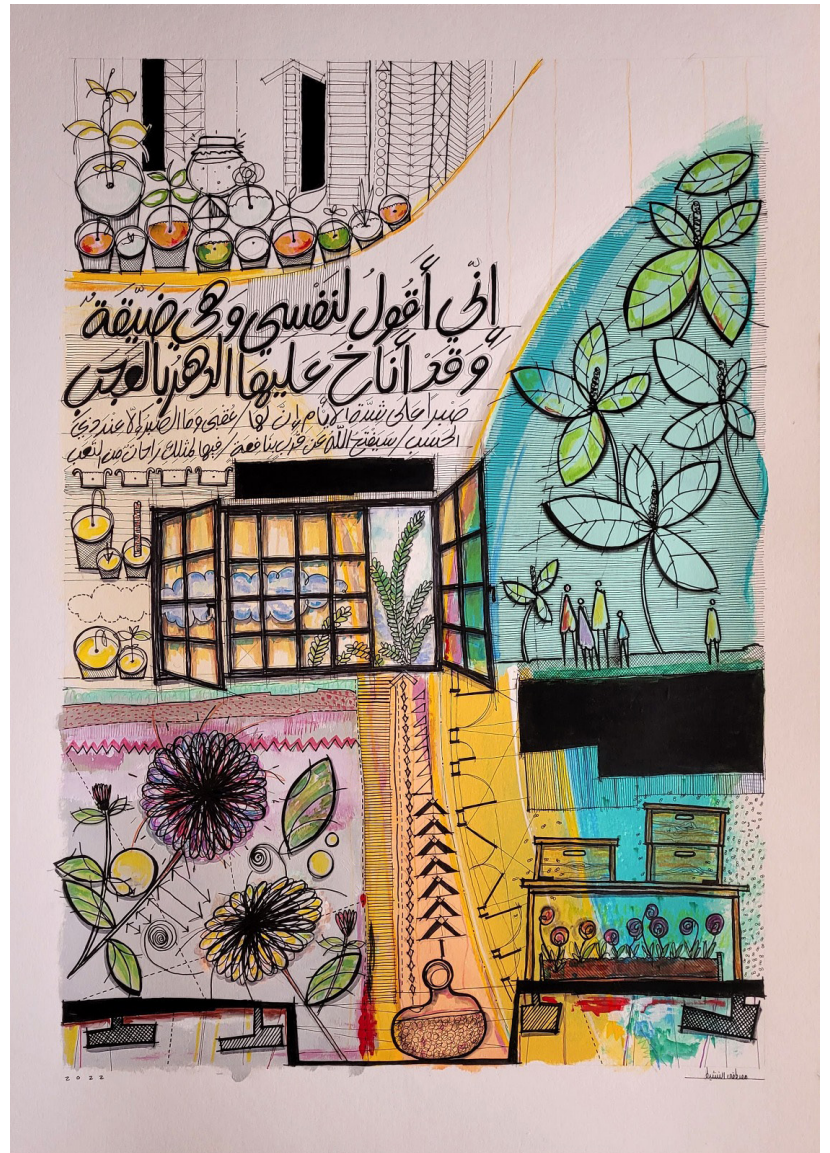 إنّي أَقولُ لنَفْسي وهْيَ ضَيّقةٌ
وَقَدْ أَناخَ عَليها الدهرُ بالعَجَبِ
صبرًا على شدّة الأيّام إنّ لها / عقبى وما الصبر إلا عند ذي
الحسب / سيفتح الله عن قرب بنافعة / فيها لمثلك راحات من التعب
2022